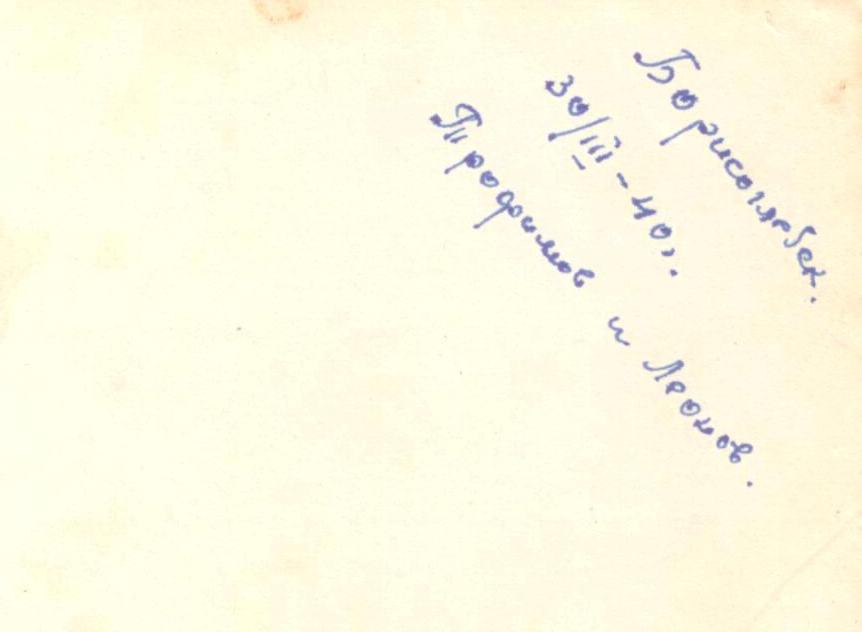 Борисоглебск.
30/III-40г.
Трофимов и Леонов.